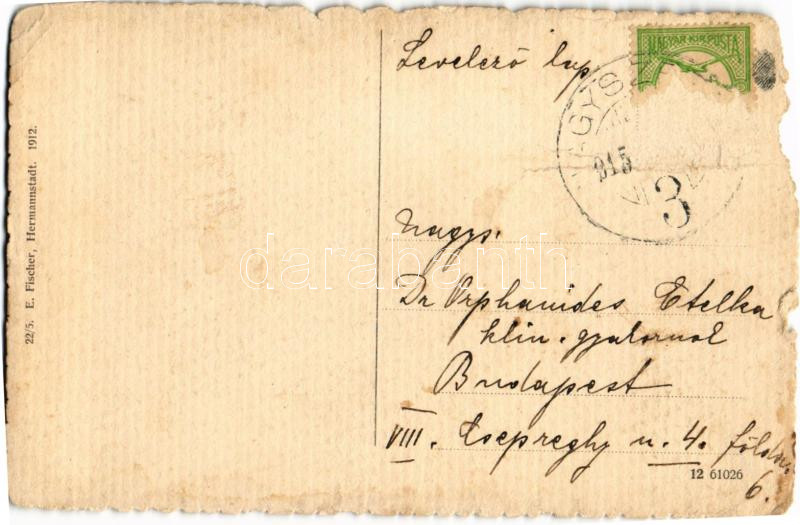 Levelező lap
MAGYAR·KIR·POSTA
NAGYSZ
915
3
Nagys.
Dr Orphanides Etelka
klin. gyakornok
Budapest
VIII. Csepreghy u. 4. földsz.
6.
12 61026
22/5. E. Fischer, Hermannstadt. 1912.
darabanth